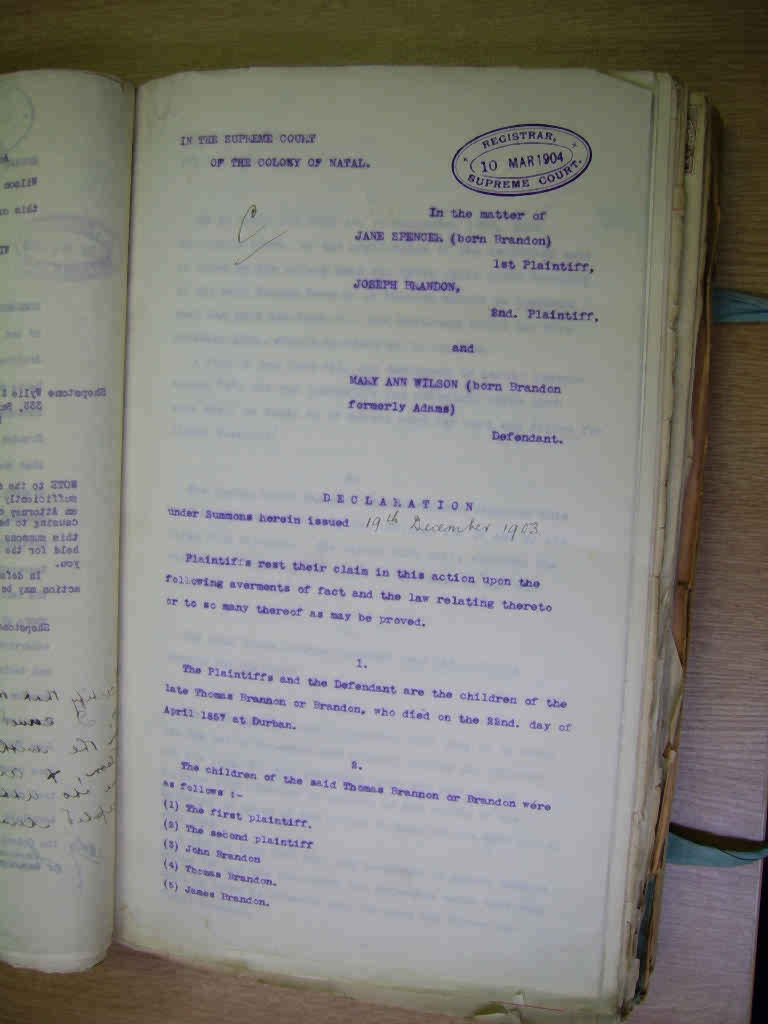 IN THE SUPREME COURT
OF THE COLONY OF NATAL.
REGISTRAR,
10 MAR 1904
SUPREME COURT.
C
In the matter of
JANE SPENCER (born Brandon)
1st Plaintiff,
JOSEPH BRANDON,
2nd. Plaintiff,
and
MARY ANN WILSON (born Brandon
formerly Adams)
Defendant.
DECLARATION
under Summons herein issued 19th December 1903.
Plaintiffs rest their claim in this action upon the
following averments of fact and the law relating thereto
or to so many thereof as may be proved.
1.
The Plaintiffs and the Defendant are the children of the
late Thomas Brannon or Brandon, who died on the 22nd. day of
April 1857 at Durban.
2.
The children of the said Thomas Brannon or Brandon were
as follows :-
(1) The first plaintiff.
(2) The second plaintiff
(3) John Brandon
(4) Thomas Brandon.
(5) James Brandon.